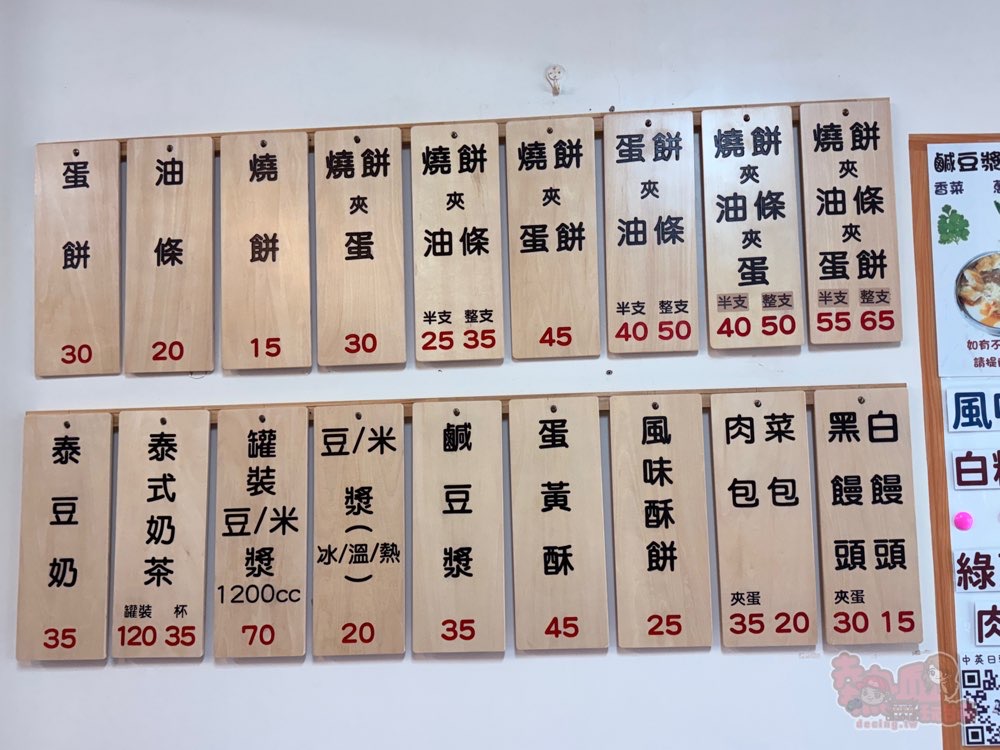 蛋餅
30
油條
20
燒餅
15
燒餅
夾
蛋
30
燒餅
夾
油條
半支 整支
25 35
燒餅
夾
蛋餅
45
蛋餅
夾
油條
半支 整支
40 50
燒餅
夾
油條
夾
蛋
半支 整支
40 50
燒餅
夾
油條
夾
蛋餅
半支 整支
55 65
泰豆奶
35
泰式奶茶
罐裝 杯
120 35
罐裝
豆/米
漿
1200cc
70
豆/米
漿
(冰/溫/熱)
20
鹹豆漿
35
蛋黃酥
45
風味酥餅
25
肉包
菜包
夾蛋
35 20
黑饅頭
白饅頭
夾蛋
30 15
鹹豆漿
香菜
如有不
風
白
綠
肉
中英日
decing.tw